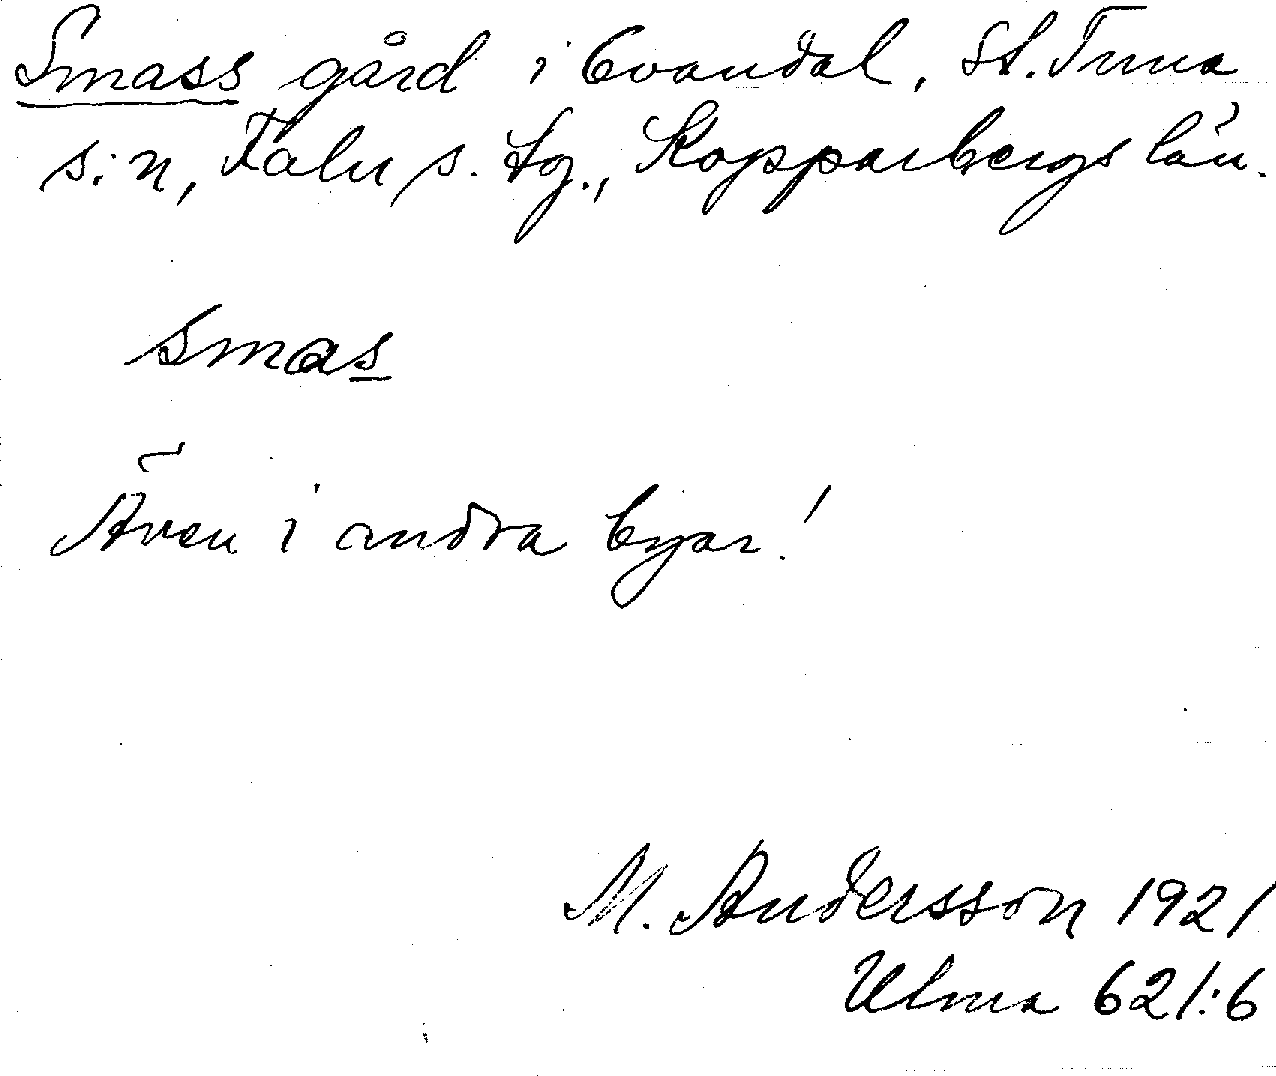 Smass gård i Tvandal, St. Tuna
s:n, Falu s. tg., Kopparbergs län.
smas
Även i andra byar!
M. Andersson 1921
Ulma 621:6